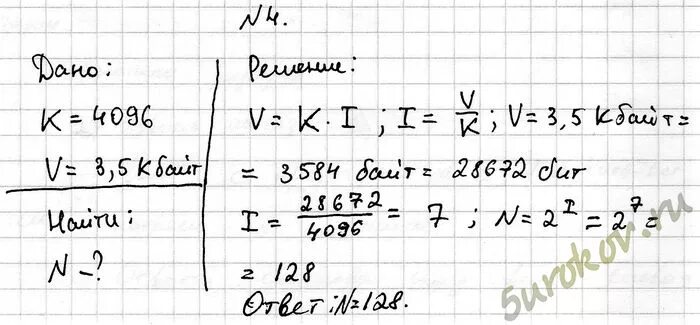 N4.
Дано:
K = 4096
V = 3,5 Кбайт
Найти:
N - ?
Решение:
V = K · I ; I = V/K ; V = 3,5 Кбайт =
= 3584 байт = 28672 бит
I = 28672/4096 = 7 ; N = 2^I = 2^7 =
= 128
Ответ: N=128.
5urokov.ru